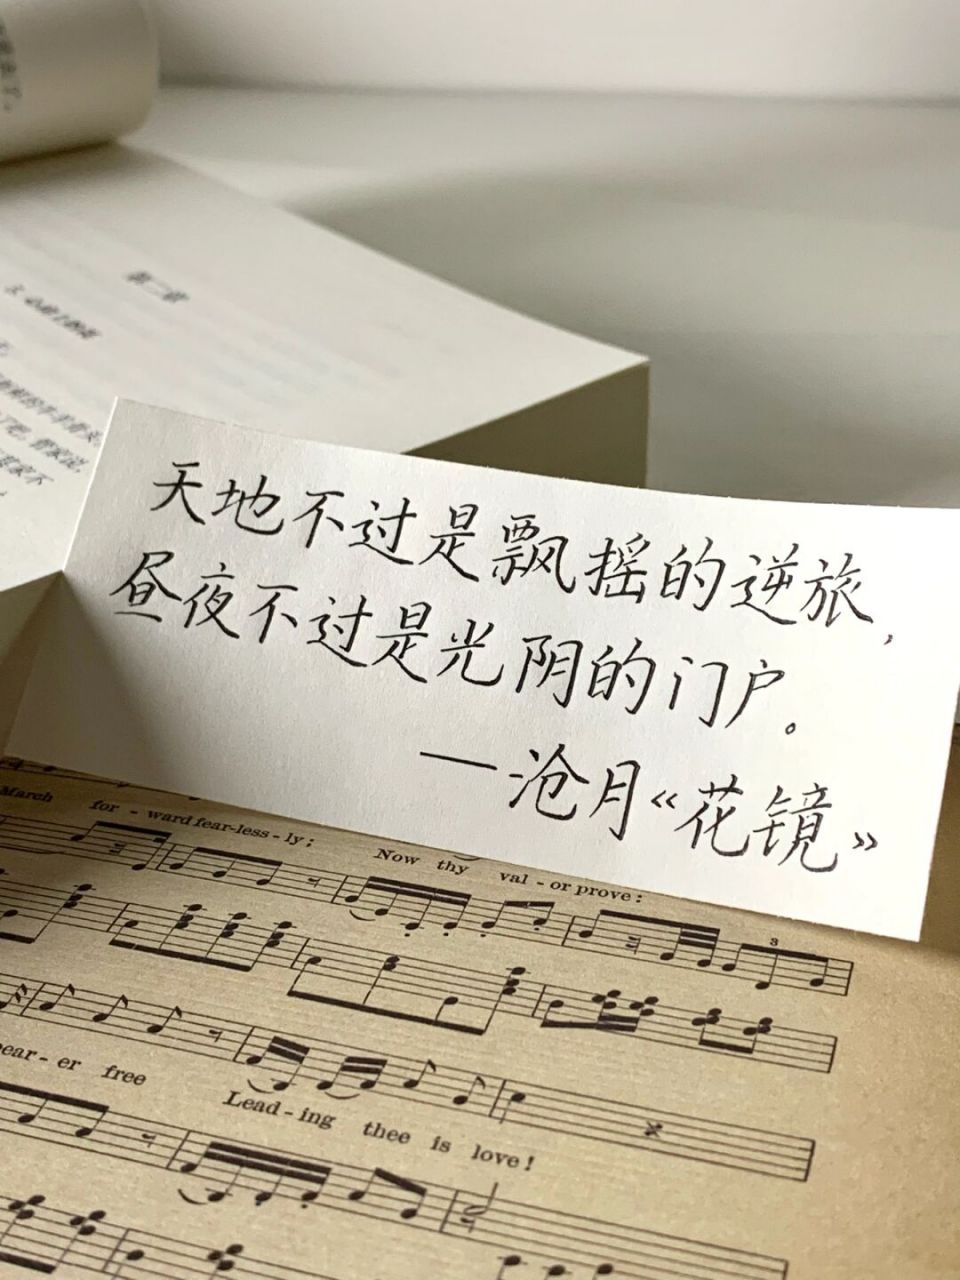 第二章
天地不过是飘摇的逆旅,
昼夜不过是光阴的门户。
——沧月《花镜》
March for-ward fear-less-ly; Now thy val-or prove:
3
er free
Lead-ing thee is love!